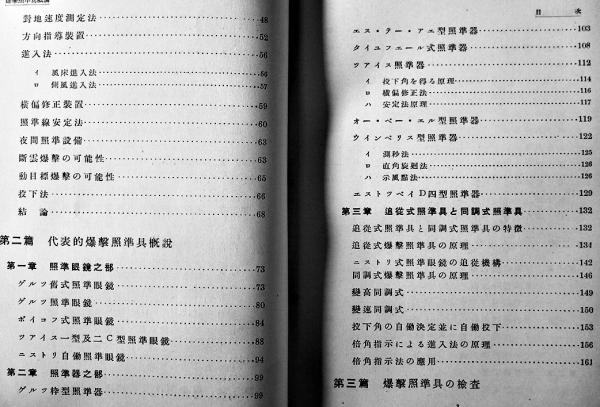 對地速度測定法 48
方向指導裝置 52
進入法 56
イ 風床進入法 56
ロ 側風進入法 57
橫偏修正裝置 59
照準線安定法 60
夜間照準設備 63
斷雲爆擊の可能性 63
動目標爆擊の可能性 65
投下法 66
結論 68
第二篇 代表的爆擊照準具槪說
第一章 照準眼鏡之部 73
ゲルツ舊式照準眼鏡 73
ゲルツ照準眼鏡 80
ボイコフ式照準眼鏡 84
ツアイス一型及二C型照準眼鏡 88
ニストリ自働照準眼鏡 94
第二章 照準器之部 99
ゲルツ枠型照準器 99
目次
エス・テー・アエ型照準器 103
タイユフェール式照準器 108
ツアイス照準器 112
イ 投下角を得る原理 114
ロ 橫偏修正法 116
ハ 安定法原理 117
オー・ペー・エル型照準器 119
ウインペリス型照準器 122
イ 測秒法 125
ロ 直角旋廻法 126
ハ 示風點法 126
エストツペイD四型照準器 129
第三章 追從式照準具と同調式照準具
追從式照準具と同調式照準具の特徵 132
追從式爆擊照準具の原理 134
ニストリ式照準眼鏡の追從機構 142
同調式爆擊照準具の原理 146
變高同調式 149
變速同調式 150
投下角の自働決定並に自働投下 153
倍角指示による進入法の原理 156
倍角指示法の應用 161
第三篇 爆擊照準具の檢査